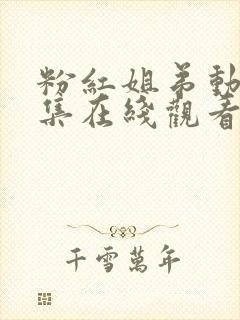 粉紅姐弟動
集在綫觀看
千雪萬年